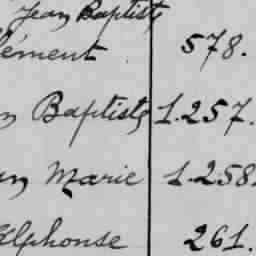 Jean Baptiste
lément 578.
n Baptiste 1.257.
an Marie 1.258.
Alphonse 261.